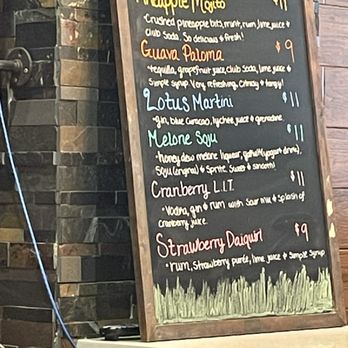 Pineapple Mojito $11
*Crushed pineapple bits, mint, rum, lime juice &
Club Soda. So delicious & fresh!
Guava Paloma $9
*tequila, grapefruit juice, club Soda, lime juice &
Simple syrup. Very refreshing, Citrusy & tangy!
Lotus Martini $11
*gin, blue Curacao, lychee juice & grenadine
Melone Soju $11
*honey dew melone liqueur, (yogurt drink),
Soju (original) & Sprite. Sweet & smooth!
Cranberry L.I.T. $11
*Vodka, gin & rum with Sour Mix & Splash of
cranberry juice.
Strawberry Daiquiri $9
*rum, Strawberry purée, lime juice & Simple Syrup